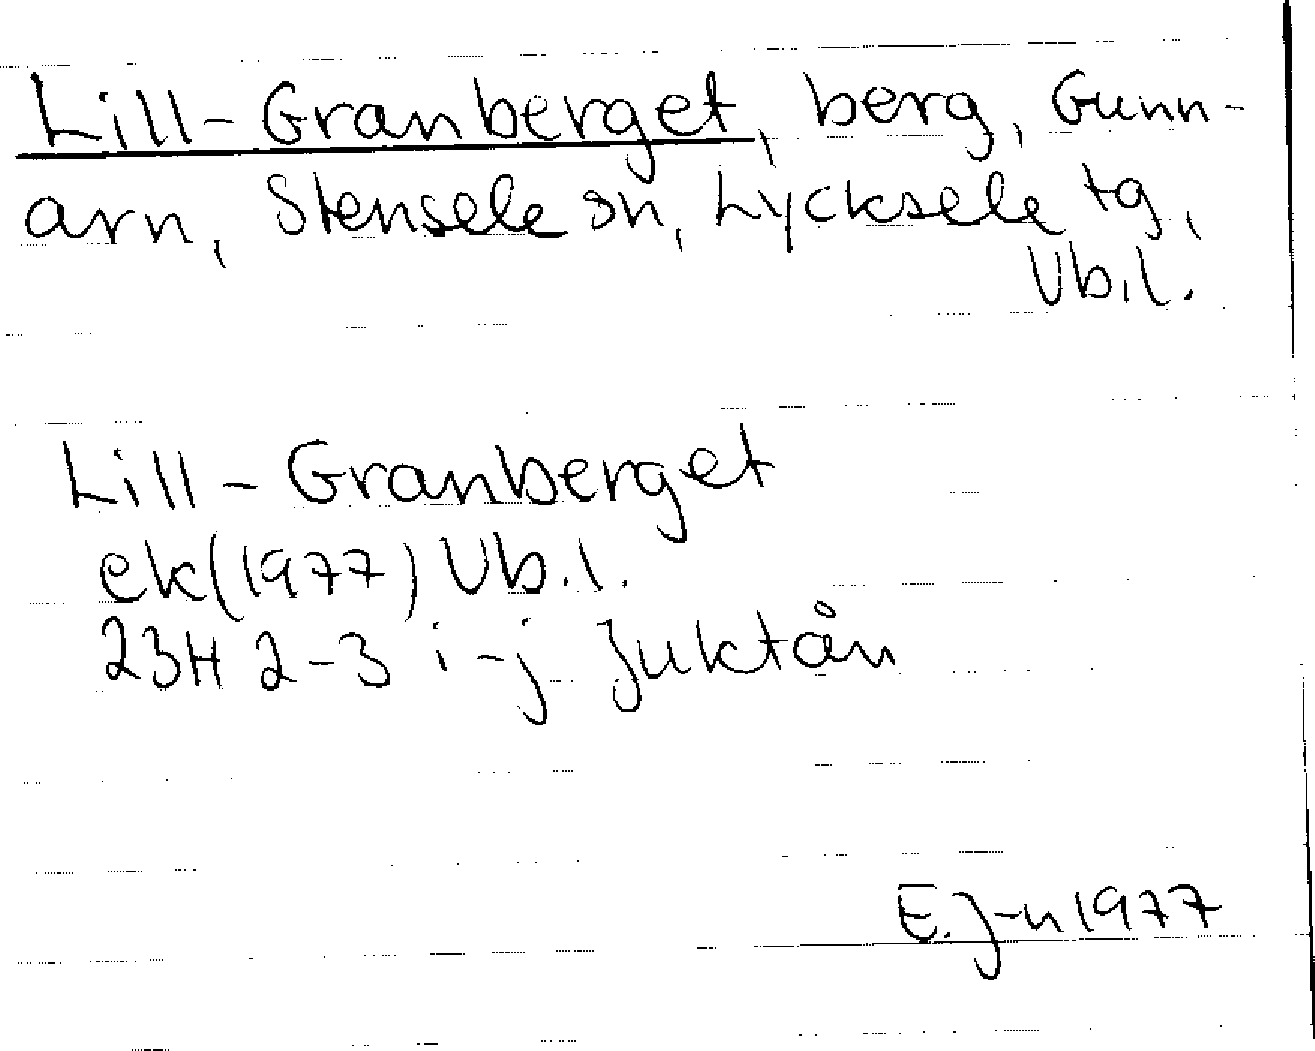 Lill-Granberget, berg, Gunn-
arn, Stensele sn, Lycksele tg,
Vb.l.
Lill-Granberget
ek(1977) Vb.l.
23H 2-3 i-j Juktån
E.J-n 1977